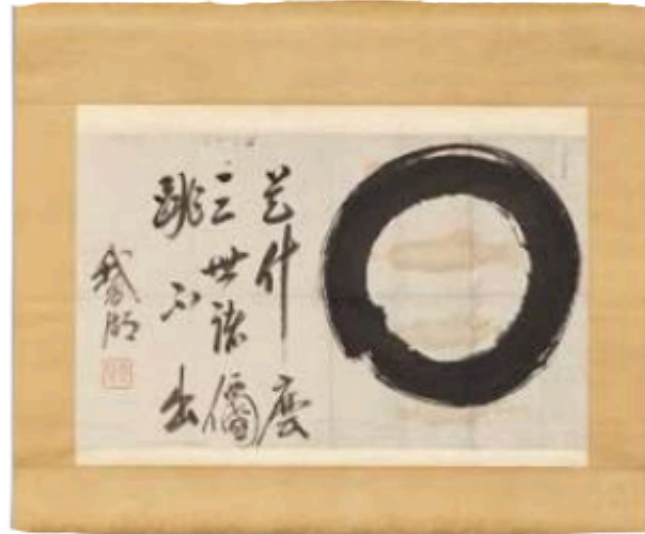 是什麼
三世諸佛
跳不出
鵞湖